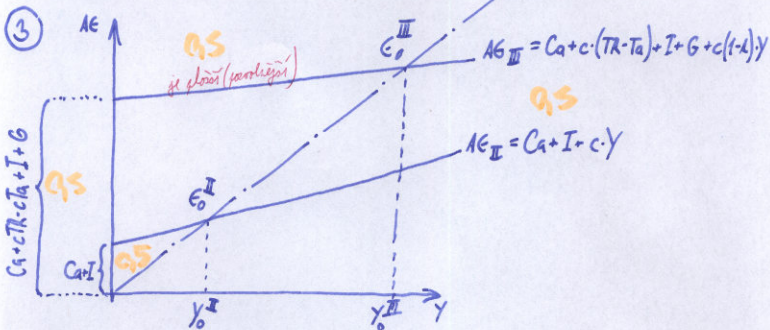 3
AE
0,5
je plošší (povolnější)
E₀ᴵᴵᴵ
AE_III = Ca + c·(TR-Ta) + I + G + c(1-t)·Y
0,5
AE_II = Ca + I + c·Y
Ca + cTR - cTa + I + G
0,5
E₀ᴵᴵ
Ca+I
0,5
Y₀ᴵᴵ
Y₀ᴵᴵᴵ
Y